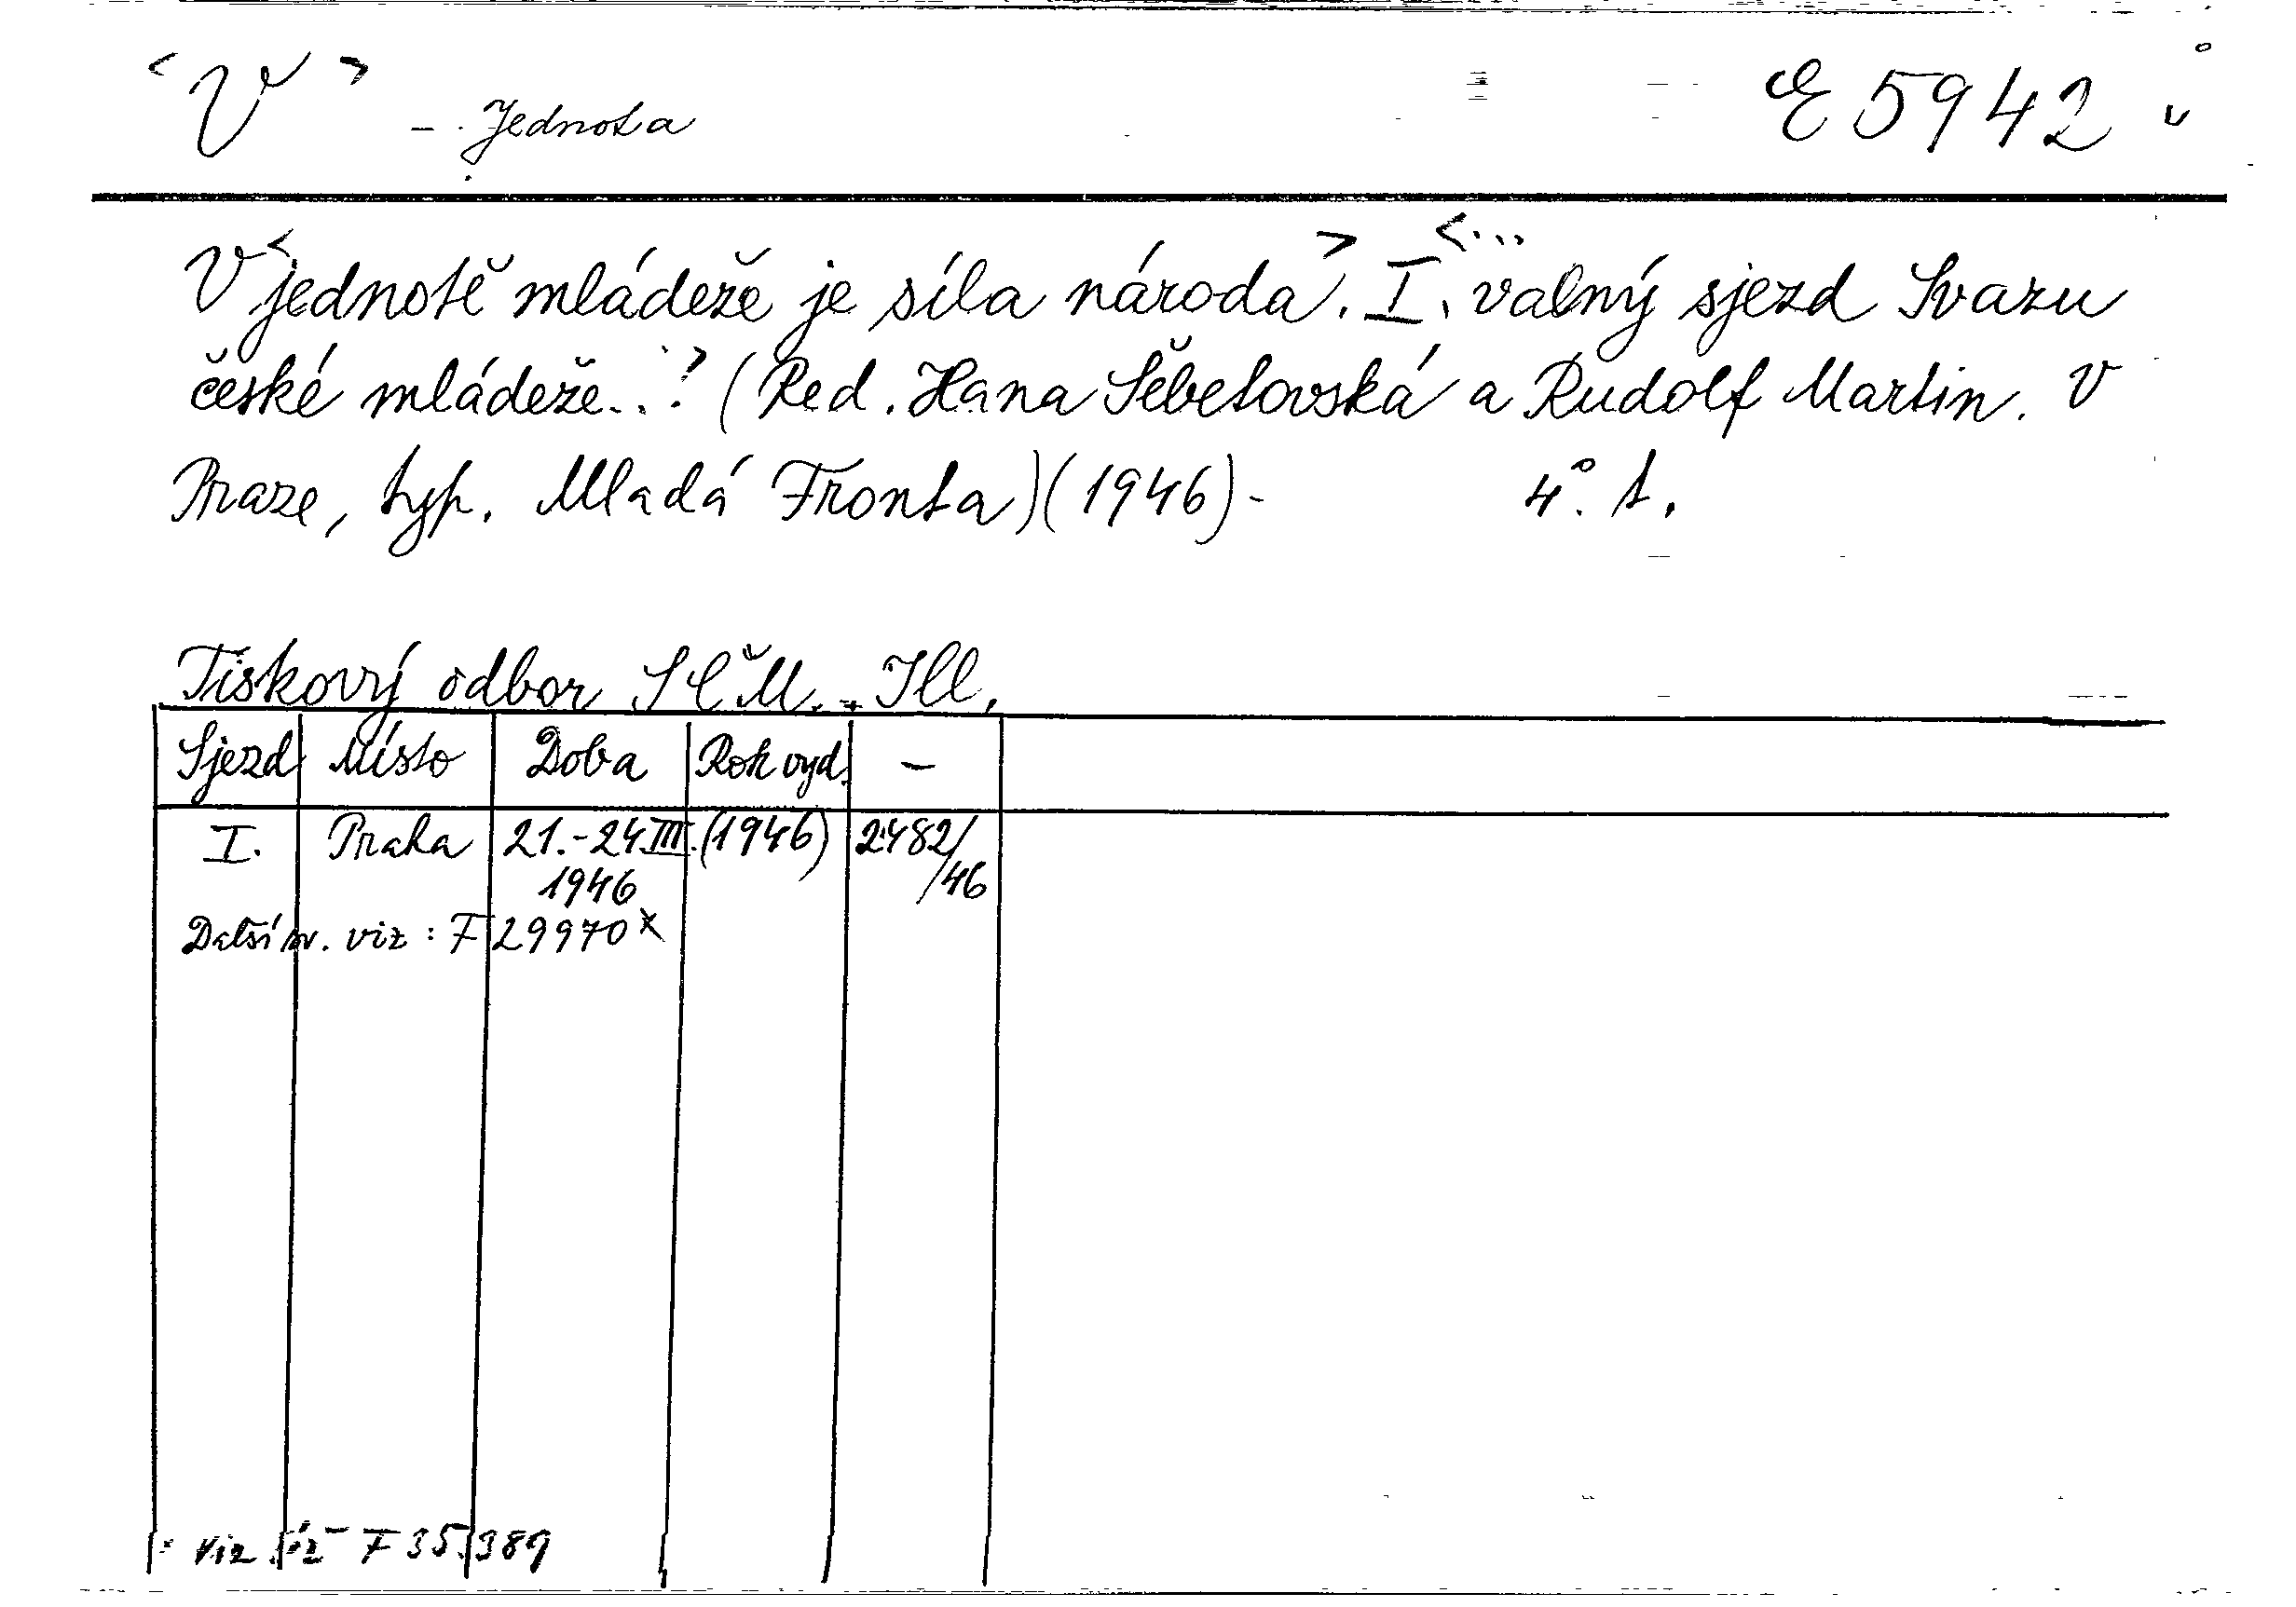 <V> - Jednota E 5942
V <jednotě mládeže je síla národa>. I. <...valný sjezd Svazu
české mládeže...> (Red. Hana Šebetovská a Rudolf Martin. V
Praze, typ. Mladá Fronta)(1946)- 4°. t.
Tiskový odbor SČM. - Ill.
Sjezd Místo Doba Rok vyd. -
I. Praha 21.-24.III. (1946) 2482/
1946 /46
Další sv. viz: F 29970 x
viz F 35.389